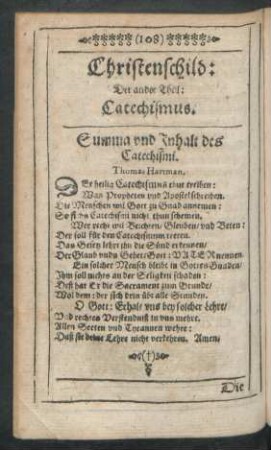 (108)
Christenschild:
Der ander Theil:
Catechismus.
Summa vnd Inhalt des
Catechismi.
Thomas Hartman.
Der heilig Catechismus thut treiben:
Was Propheten vnd Apostel schreiben.
Die Menschen wil Gott zu Gnad annemen:
So sich des Catechismi nicht thun schemen,
Wer recht wil Beichten, Gleuben, vnd Beten:
Der soll für den Catechismum tretten.
Das Gesetz lehrt ihn die Sünd erkennen,
Der Glaub vnds Gebet, Gott: VATER nennen.
Ein solcher Mensch bleibt in Gottes Gnaden,
Ihm soll nichts an der Seligkeit schaden:
Deß hat Er die Sacrament zum Grunde,
Wol dem: der sich drin übt alle Stunden.
O Gott: Erhalt vns bey solcher Lehre,
Vnd rechten Verstendnuß in vns mehre,
Allen Secten vnd Tyrannen wehre:
Daß sie deine Lehre nicht verkehren. Amen,
(†)
Die